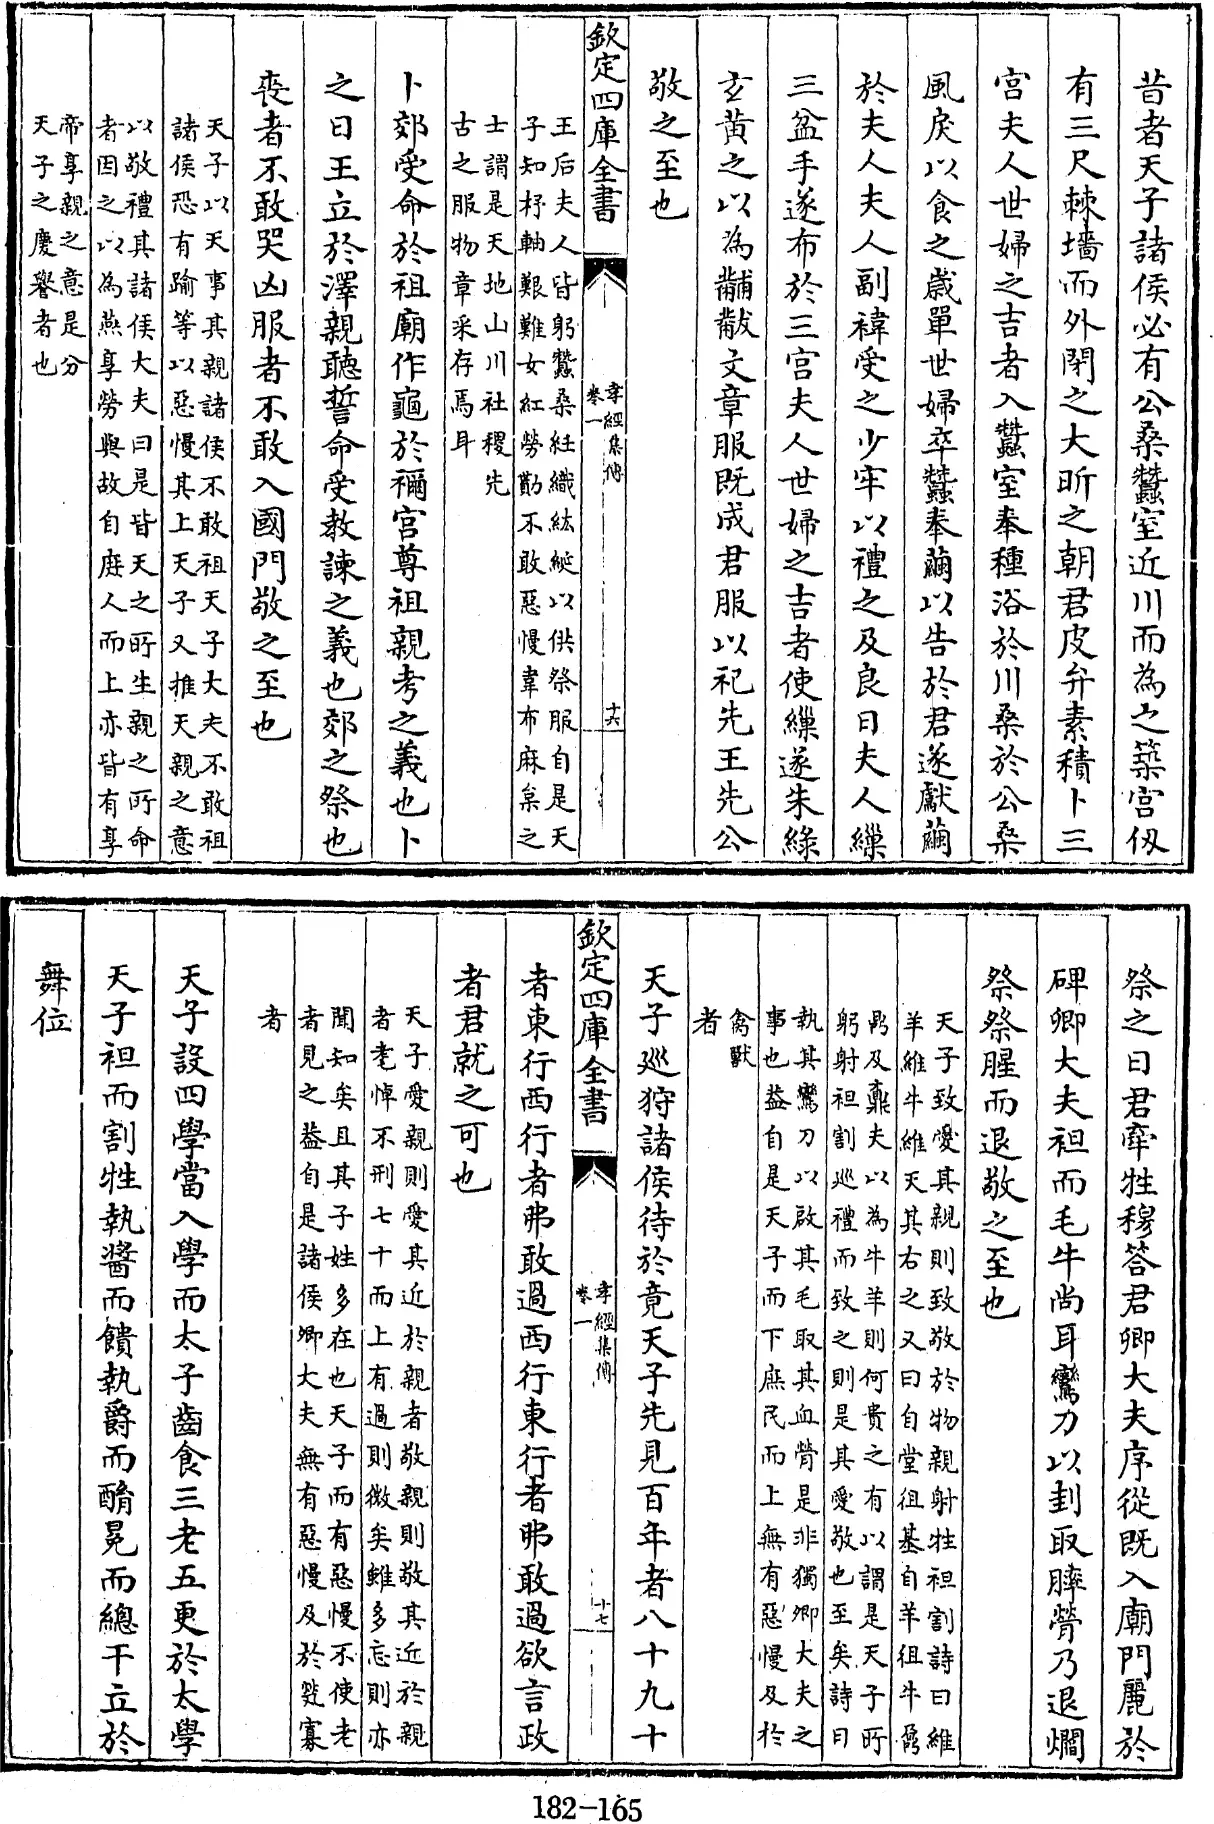 昔者天子諸侯必有公桑蠶室近川而為之築宮仭
有三尺棘墻而外閉之大昕之朝君皮弁素積卜三
宮夫人世婦之吉者入蠶室奉種浴於川桑於公桑
風戾以食之歲單世婦卒蠶奉繭以告於君遂獻繭
於夫人夫人副褘受之少牢以禮之及良日夫人繅
三盆手遂布於三宮夫人世婦之吉者使繅遂朱綠
玄黃之以為黼黻文章服既成君服以祀先王先公
敬之至也
欽定四庫全書
孝經集傳
卷一
十六
王后夫人皆躬蠶桑紝織紘綖以供祭服自是天
子知杼軸艱難女紅勞勩不敢惡慢韋布麻枲之
士謂是天地山川社稷先
古之服物章采存焉耳
卜郊受命於祖廟作龜於禰宮尊祖親考之義也卜
之日王立於澤親聽誓命受教諫之義也郊之祭也
喪者不敢哭凶服者不敢入國門敬之至也
天子以天事其親諸侯不敢祖天子大夫不敢祖
諸侯恐有踰等以惡慢其上天子又推天親之意
以敬禮其諸侯大夫曰是皆天之所生親之所命
者因之以為燕享勞與故自庶人而上亦皆有享
帝享親之意是分
天子之慶譽者也
祭之日君牽牲穆答君卿大夫序從既入廟門麗於
碑卿大夫袒而毛牛尚耳鸞刀以刲取膟膋乃退爓
祭祭腥而退敬之至也
天子致愛其親則致敬於物親射牲袒割詩曰維
羊維牛維天其右之又曰自堂徂基自羊徂牛鼐
鼎及鼒夫以為牛羊則何貴之有以謂是天子所
躬射袒割巡禮而致之則是其愛敬也至矣詩曰
執其鸞刀以啟其毛取其血膋是非獨卿大夫之
事也蓋自是天子而下庶民而上無有惡慢及於
禽獸
者
天子巡狩諸侯待於竟天子先見百年者八十九十
欽定四庫全書
孝經集傳
卷一
十七
者東行西行者弗敢過西行東行者弗敢過欲言政
者君就之可也
天子愛親則愛其近於親者敬親則敬其近於親
者耄悼不刑七十而上有過則微矣雖多忘則亦
聞知矣且其子姓多在也天子而有惡慢不使老
者見之蓋自是諸侯卿大夫無有惡慢及於煢寡
者
天子設四學當入學而太子齒食三老五更於太學
天子袒而割牲執醬而饋執爵而酳冕而總干立於
舞位
182-165